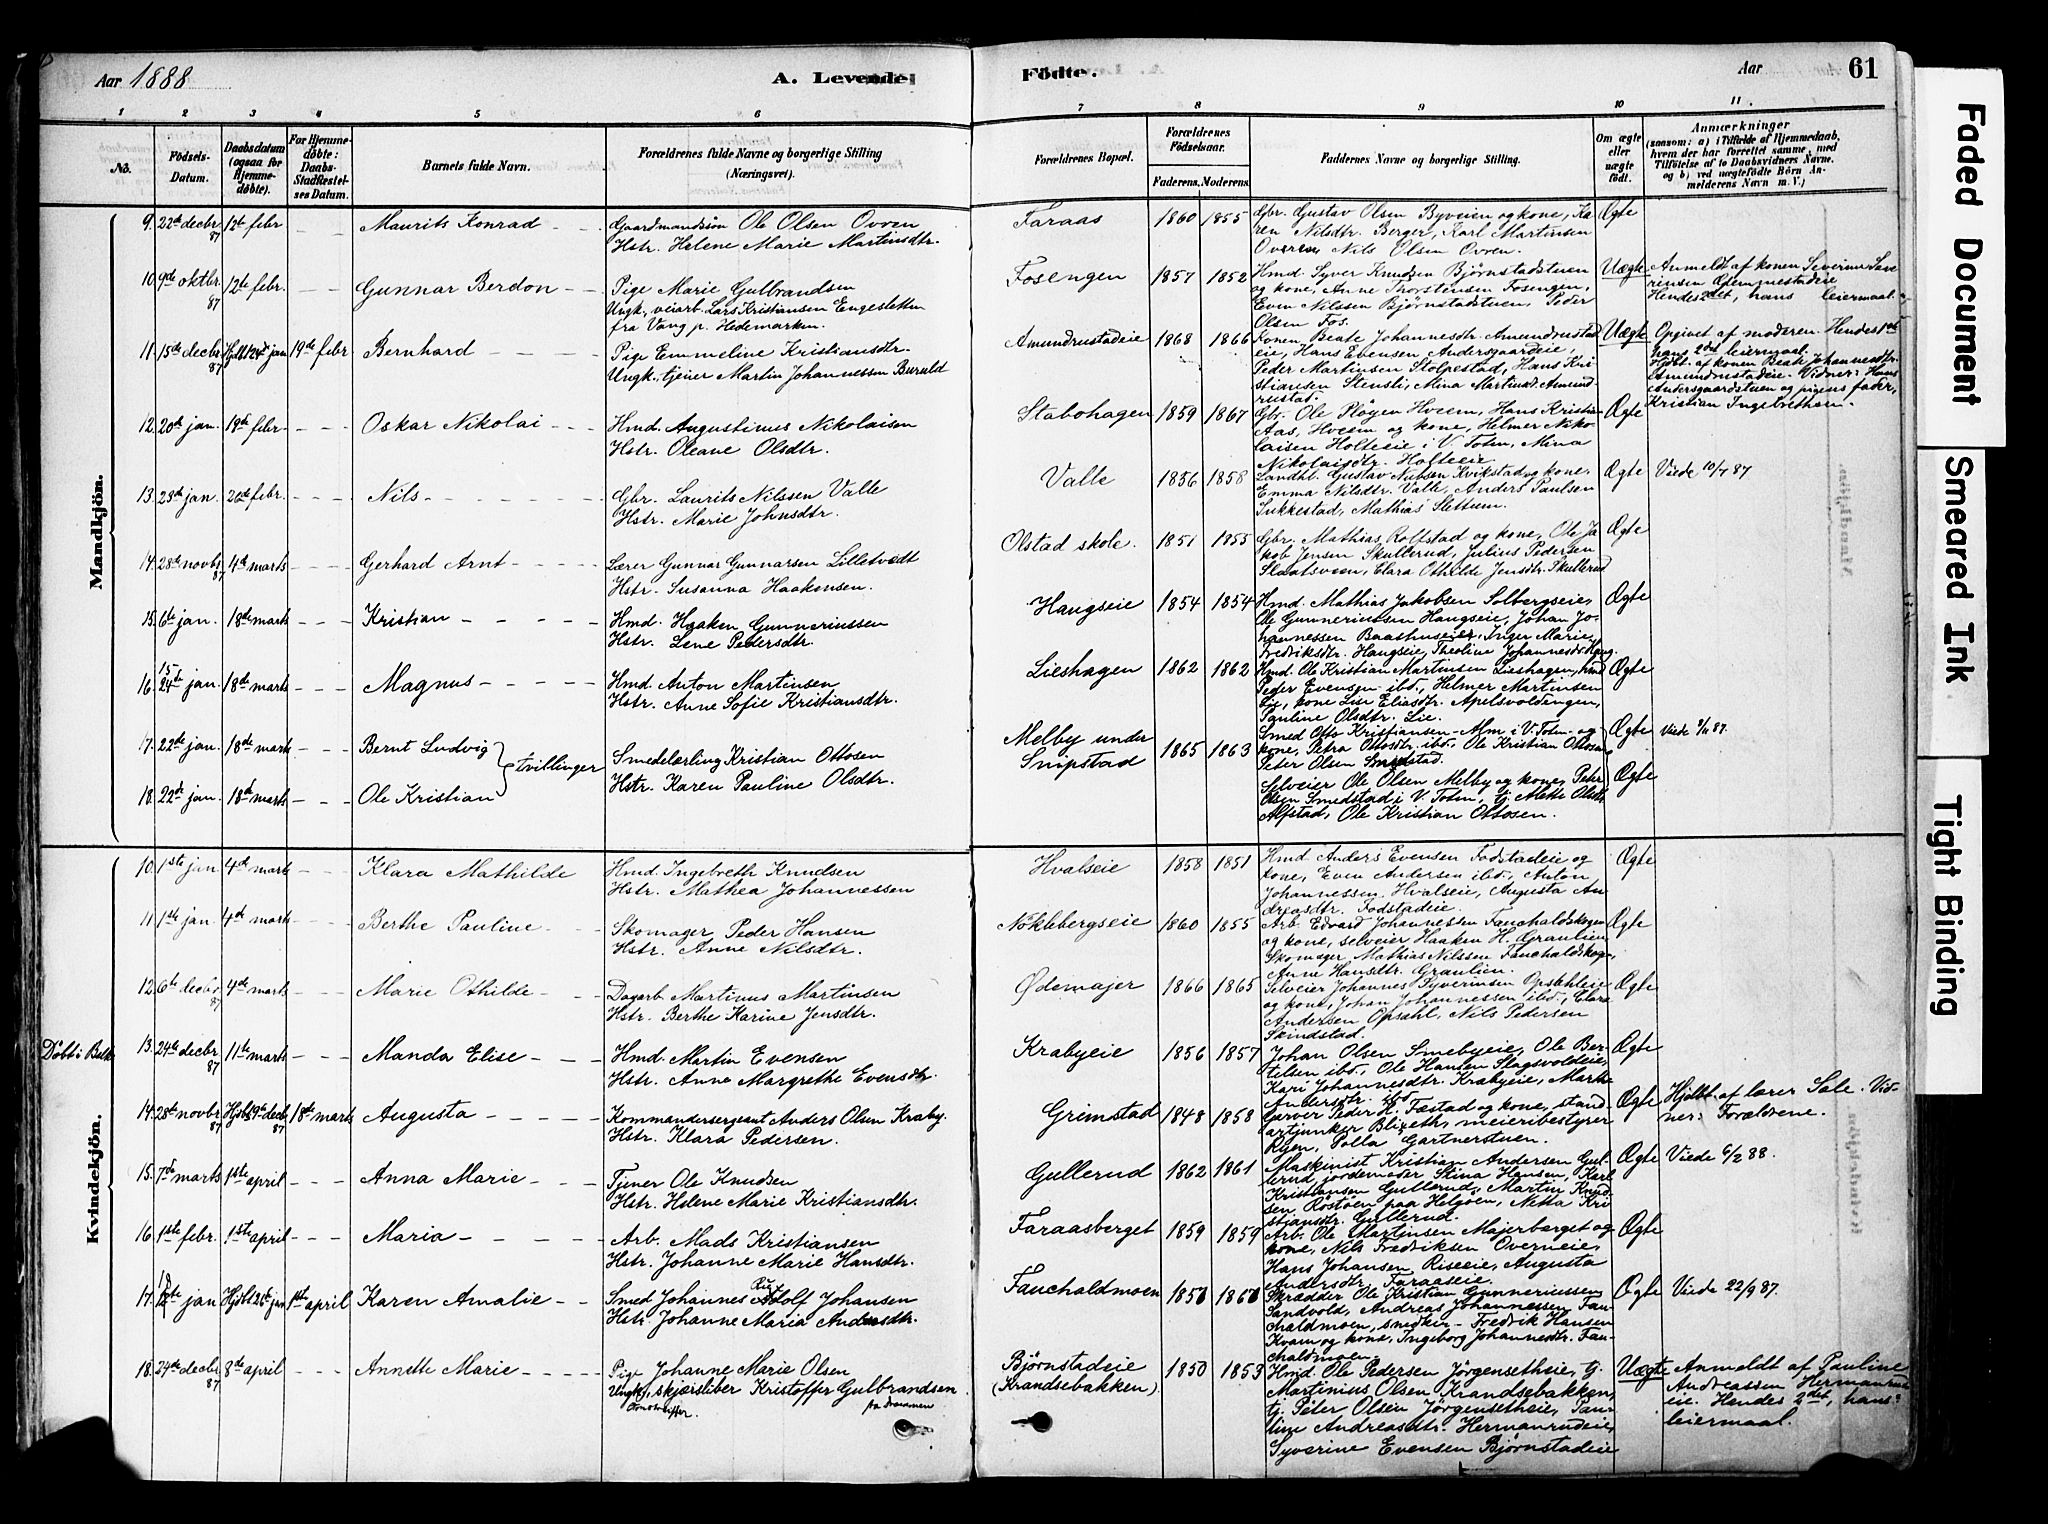 Aar 1888
A. Levende
Födte.
Aar
61
1 2 3 4 5 6 7 8 9 10 11.
No.
Födsels-Datum.
Daabsdatum (ogsaa for Hjemmedöbte).
For Hjemmedöbte: Daabs-Stadfæstelses Datum.
Barnets fulde Navn.
Forældrenes fulde Navne og borgerlige Stilling (Næringsvei).
Forældrenes Bopæl.
Forældrenes Födselsaar.
Faderens. Moderens.
Faddernes Navne og borgerlige Stilling.
Om ægte eller uægte födt.
Anmærkninger
(saasom: a) i Tilfælde af Hjemmedaab, hvem der har forrettet samme, med Tilföielse af to Daabsvidners Navne. og b) ved uægtefödte Börn Anmelderens Navn m. V.)
Mandkjön.
9. 22de decbr 87 12te febr - - Maurits Konrad - -
Gaardmandssön Ole Olsen Ovren
Hstr. Helene Marie Martinsdtr.
Faraas 1860 1855
Gbr. Gustav Olsen Byveien og kone, Ka
ren Nilsdtr. Berger, Karl Martinsen
Overen Nils Olsen Ovren.
Ægte
10. 9de oktbr. 87 12te febr. - - Gunnar Berdon - -
Pige Marie Gulbrandsen
Ungk., veiarb. Lars Kristiansen Engesletten
fra Vang p. Hedemarken.
Fosengen 1857 1852
Hmd. Syver Knudsen Björnstadstuen
og kone, Anne Thorstensen Fosengen,
Even Nilsen Björnstadstuen, Peder
Olsen Fos.
Uægte
Anmeldt af konen Severine Sæve
rinsen
Hendes 2det, hans leiermaal.
11. 15de decbr. 87 Hjdbt 24de jan 19de febr Bernhard - - -
Pige Emmeline Kristiansdtr.
Ungk., tjener Martin Johannessen Buruld
Amundrustadeie 1868 1866
Konen Beate Johannesdtr. Amundrustad
eie, Hans Evensen Andersgaardeie,
Peder Martinsen Stolpestad, Hans Kri
stiansen Stensli, Mina Martinsd. Amund
rustad.
Uægte
Opgivet af moderen. Hendes 1ste
hans 2det leiermaal.
Hjdbt. af konen Beate Johannesdtr.
Amundrustadeie. Vidner: Hans
Andersgaardstuen og pigens fader,
Kristian Ingebrethsen.
12. 20de jan. 19de febr. - - Oskar Nikolai - - -
Hmd. Augustinus Nikolaisen
Hstr. Oleane Olsdtr.
Stabohagen 1859 1867
Gbr. Ole Plöyen Hveem, Hans Kristian
Aas, Hveem og kone, Helmer Niko
laisen Holteeie i V. Toten, Mina
Nikolaisdtr. Holteeie.
Ægte
13. 23de jan. 26de febr. - - - Nils - - - -
Gbr. Laurits Nilssen Valle
Hstr. Marie Johnsdtr.
Valle 1856 1858
Landhl. Gustav Nilsen Kvikstad og kone,
Emma Nilsdtr. Valle, Anders Paulsen
Sukkestad, Mathias Slettum.
Ægte
Viede 10/7 87
14. 28de novbr 87 4de marts - - - Gerhard Arnt - - - -
Lærer Gunnar Gunnarsen Lilletvedt
Hstr. Susanna Haakensen.
Olstad skole. 1851 1855
Gbr. Mathias Rolfstad og kone, Ole Ja
kob Jensen Skullerud, Julius Pedersen
Slaatsveen, Clara Othilde Jensdtr. Skullerud
Ægte
15. 6te jan. 18de marts - - - Kristian - - - -
Hmd. Haaken Gunneriussen
Hstr. Lene Pedersdtr.
Haugseie 1854 1854
Hmd. Mathias Jakobsen Solbergseie,
Ole Gunneriussen Haugseie, Johan Jo
hannessen Baashuseier, Inger Marie
Fredriksdtr. Haugseie, Theoline Johannesdtr. Haug.
Ægte
16. 15 24de jan. 18de marts - - - Magnus - - - -
Hmd. Anton Martinsen
Hstr. Anne Sofie Kristiansdtr.
Lieshagen 1862 1862
Hmd. Ole Kristian Martinsen Lieshagen, hmd
Peder Evensen ibd., Helmer Martinsen
Lie, kone Lise Eliasdtr. Apelsvoldengen,
Pauline Olsdtr. Lie.
Ægte
17. 22de jan. 18de marts Bernt Ludvig
tvillinger
Smedelærling Kristian Ottosen
Hstr. Karen Pauline Olsdtr.
Melby under
Snipstad 1865 1863
Smed Otto Kristiansen Alm i V. Totn. og
kone, Petra Ottosdtr. ibd., Ole Kristian Ottosen,
Peter Olsen Smedstad.
Ægte
18. 22de jan. 18de marts - - Ole Kristian
Selveier Ole Olsen Melby og kone, Peter
Olsen Smedstad i V. Totn., tj. Mette Olsdtr.
Alfstad, Ole Kristian Ottosen.
Ægte
Kvindekjön.
10. 1ste jan. 4de marts - - - Klara Mathilde
Hmd Ingebreth Knudsen
Hstr. Mathea Johannessen
Hvalseie 1858 1851
Hmd Anders Evensen Fodstadeie og
kone, Even Andersen ibd., Anton
Johannessen Hvalseie, Augusta An
dreasdtr. Fodstadeie.
Ægte
11. 1ste jan. 4de marts - - - Berthe Pauline - -
Skomager Peder Hansen
Hstr. Anne Nilsdtr.
Nöklebergseie 1860 1855
Arb. Edvard Johannessen Fauchaldskogen
og kone, selveier Haaken H. Graulien
Skomager Mathias Nilssen Fauchaldskogen,
Anne Hansdtr. Graulien.
Ægte
12. 6te decbr 87 4de marts - - - Marie Othilde - -
Dagarb Martinus Martinsen
Hstr. Berthe Karine Jensdtr.
Ødemajer 1866 1865
Selveier Johannes Syverinsen Opsahleie
og kone, Johan Johannessen ibd., Clara
Andersen Opsahl, Nils Pedersen
Skindstad.
Ægte
Döbt i Balke
13. 24de decbr. 87 11te marts - - - Manda Elise - - -
Hmd. Martin Evensen
Hstr. Anne Margrethe Evensdtr.
Krabyeie 1856 1857
Johan Olsen Smebyeie, Ole Ber-
telsen ibd., Ole Hansen Slagsvoldeie,
Kari Johannesdtr. Krabyeie, Marthe
Andersdtr. ibd
Ægte
14. 28de novbr 87 Hjdbt 9de decbr 87 18de marts Augusta - - - -
Kommandersergeant Anders Olsen Kraby.
Hstr. Klara Pedersen.
Grimstad 1848 1858
Garver Peder H. Fæstad og kone, stand
artjunker Blixeth, meieribestyrer
Ryen, Polla Gartnerstuen.
Ægte
Hjdbt. af lærer Sole. Vid-
ner: Forældrene.
15. 7de marts 1ste april - - - Anna Marie - - -
Tjener Ole Knudsen
Hstr. Helene Marie Kristiansdtr.
Gullerud 1862 1861
Maskinist Kristian Andersen Gul-
lerud, jordemoder Stina Hansen, Karl
Kristiansen Gullerud, Martin Knud
sen Röstöen paa Helgöen, Netta Kri
stiansdtr. Gullerud.
Ægte
Viede 6/2 88.
16. 1ste febr. 1ste april - - - Maria - - - -
Arb. Mads Kristiansen
Hstr. Johanne Marie Hansdtr.
Faraasberget 1859 1859
Arb. Ole Martinsen Majerberget og
kone, Nils Fredriksen Overneie,
Hans Johansen Riseeie, Augusta
Andersdtr. Faraaseie.
Ægte
17. jan Hjdbt 26de jan 1ste april Karen Amalie - -
Smed Johannes Adolf Johansen
Hstr. Johanne Maria Andersdtr.
Fauchaldmoen 1851 1861
Skrædder Ole Kristian Gunneriussen
Sandvold, Andreas Johannessen Fau
chaldmoen, snedker Fredrik Hansen
Kvem og kone, Ingeborg Johannesdtr. Fau-
chaldmoen.
Ægte
Viede 22/9 87.
18. 24de decbr. 87 8de april - - - Annette Marie - - - -
Pige Johanne Marie Olsen
Ungk., skjærsliber Kristoffer Gulbrandsen
fra Drammen
Björnstadeie
(Krandsebakken) 1850 1853
Hmd. Ole Pedersen Jörgensetheie, tj.
Martinius Olsen Krandsebakken,
tj. Peter Olsen Jörgensetheie, Pau-
line Andreasdtr. Hermanrudeie,
Syverine Evensen Björnstadeie
Uægte
Anmeldt af Pauline
Andreassen Hermanrud
eie. Hendes 2det, hans
leiermaal.
Faded Document
Smeared Ink
Tight Binding